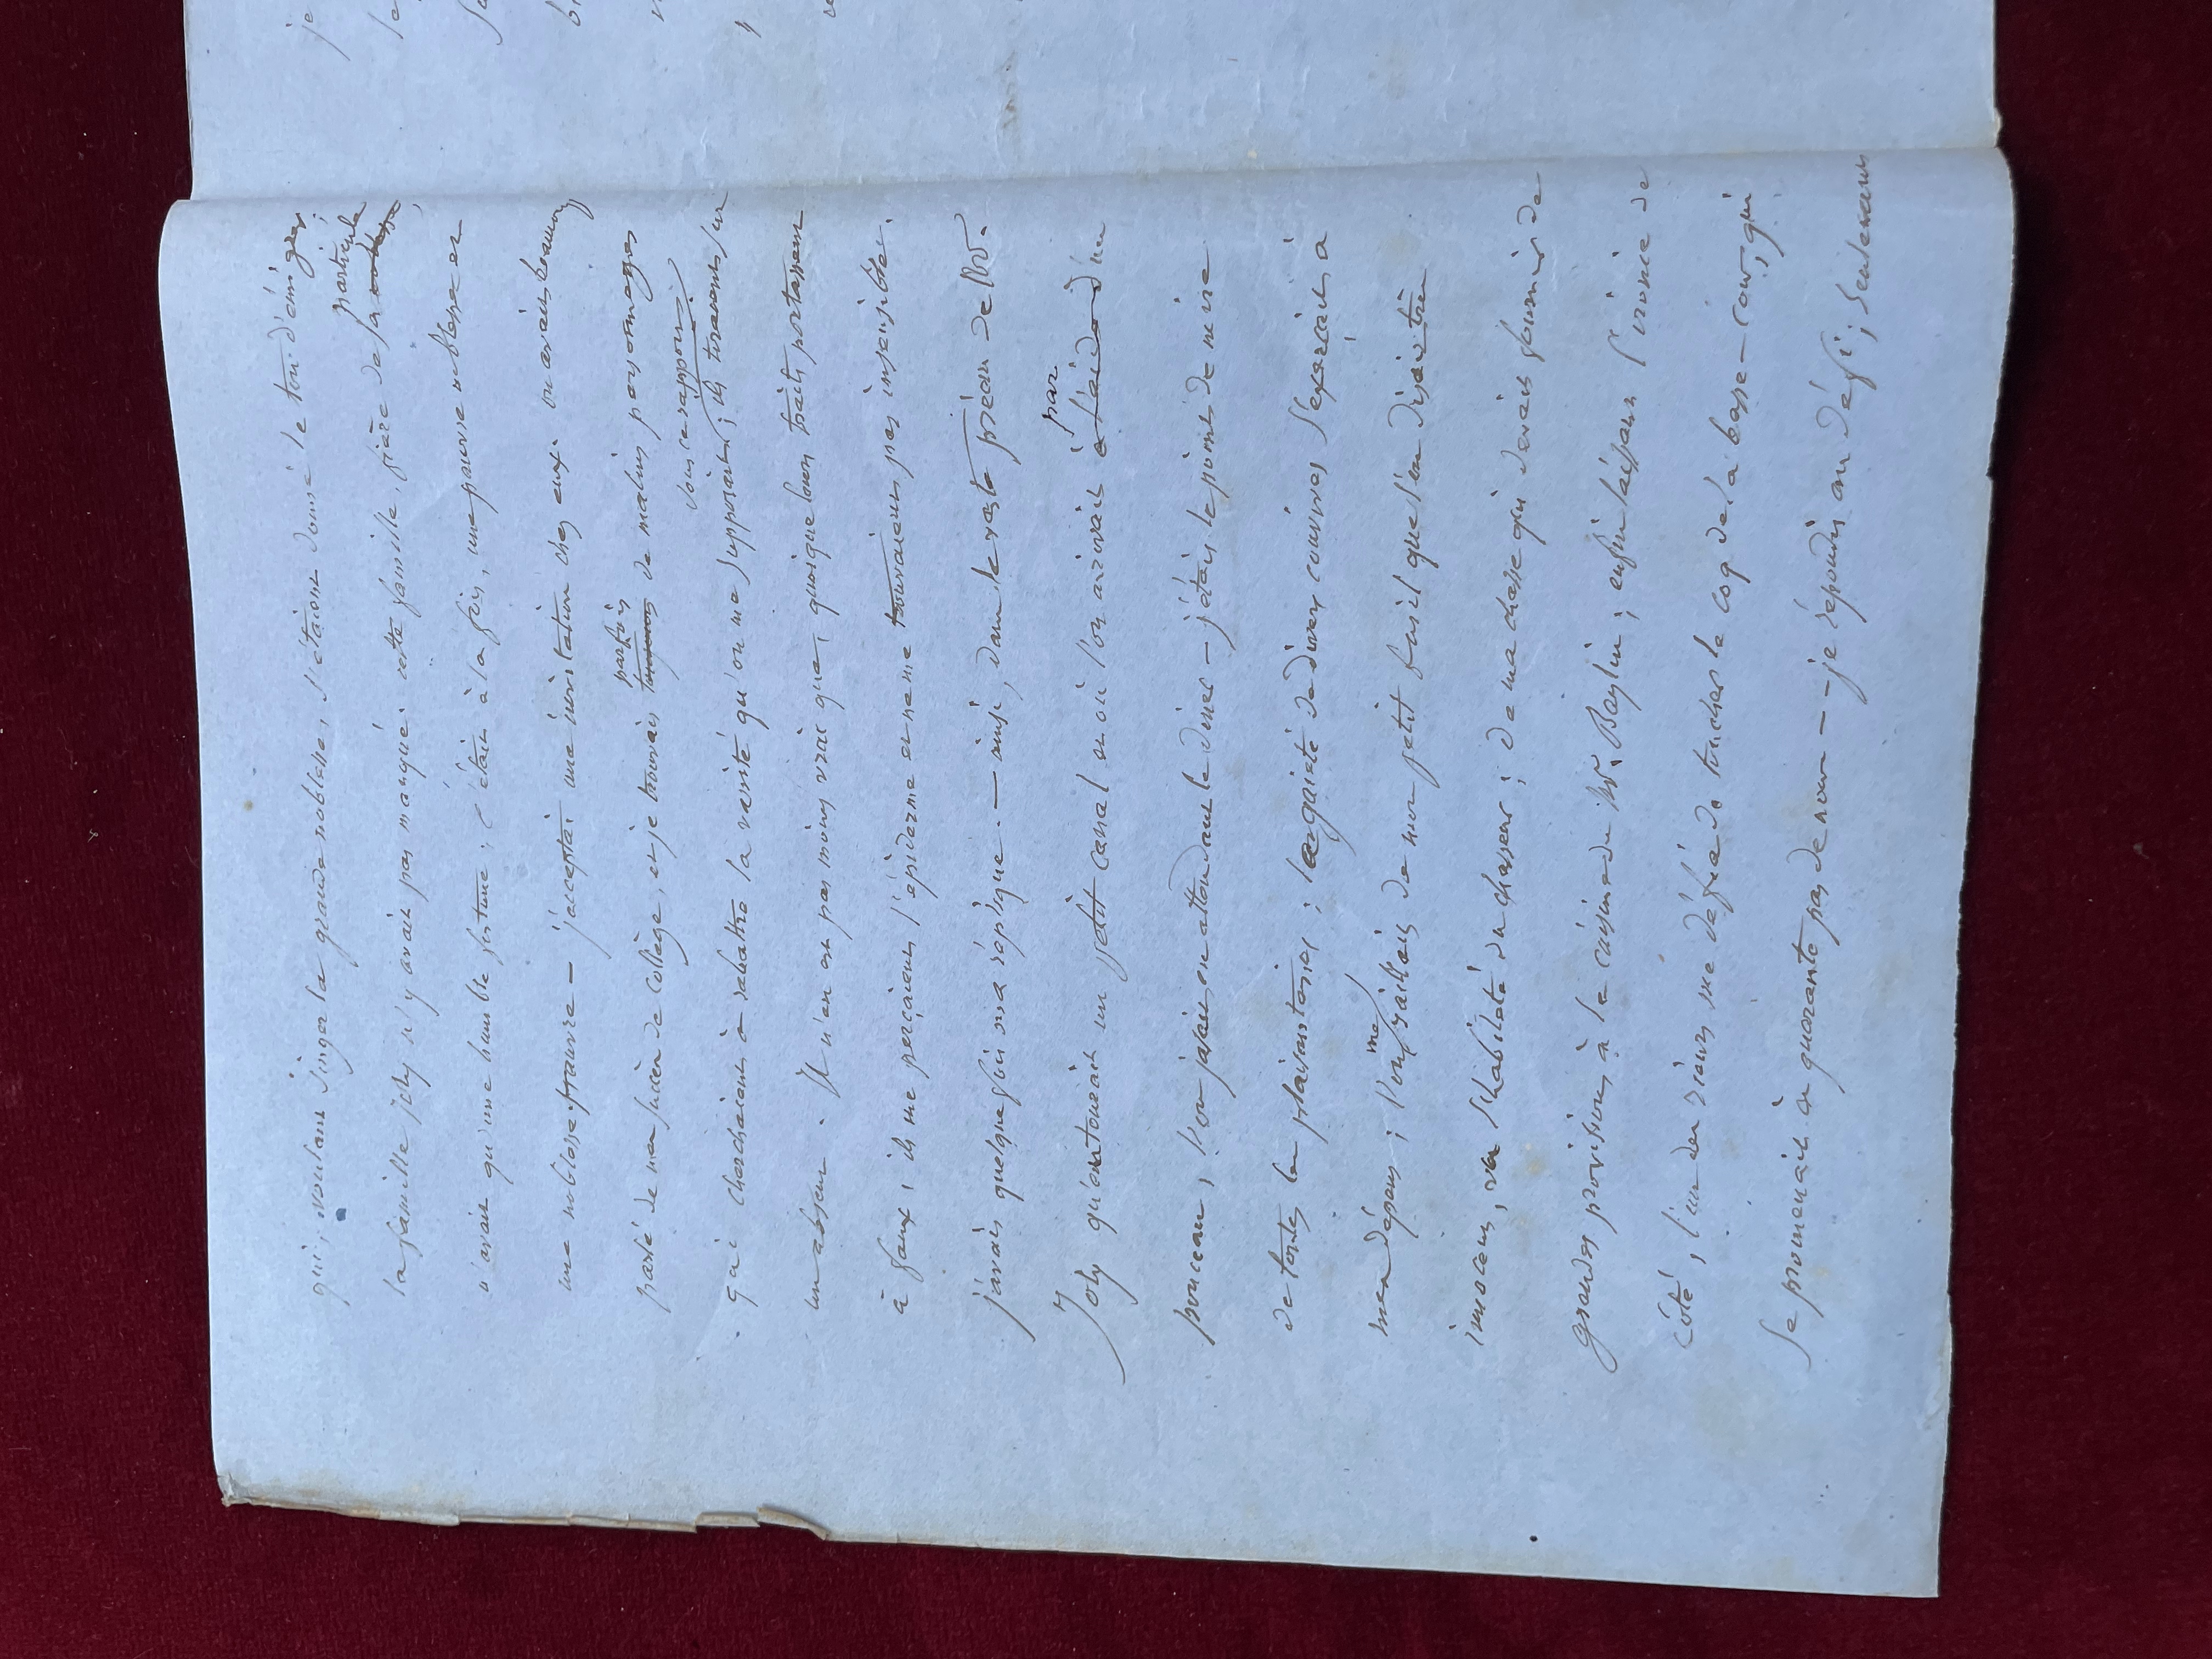 qui, voulant singer la grande noblesse, s'étaient donné le ton d'émigrer;
la famille Joly n'y avait pas manqué. cette famille, fière de sa noblesse,
particule
n'avait qu'une humble fortune; c'était à la fois, une pauvre noblesse et
une noblesse pauvre — j'acceptai une invitation chez eux. on avait beaucoup
parlé de moi, ancien de collège, et je trouvais toujours de malins personnages
parfois
qui cherchaient à rabattre la vanité qu'on me supposait; ils tiraient sur
sous ce rapport;
un absent. Il n'en est pas moins vrai que, quoique leurs traits portassent
à faux, ils me perçaient l'épiderme et ne me trouvaient pas insensible.
j'avais quelquefois ma réplique. — ainsi, dans le vaste préau de Mr.
Joly qu'entourait un petit canal et où l'on arrivait à l'aide d'un
par
ponceau, l'on jasait en attendant le dîner — j'étais le point de mire
de toutes les plaisanteries; la gaieté de divers convives s'exerçait à
mes dépens; l'on raillait de mon petit fusil que l'on disait très
me
innocent, vu l'habileté du chasseur; de ma chasse qui devait fournir de
grandes provisions à la cuisine de Mr. Baylin; enfin laissant l'ironie de
côté, l'un des rieurs me défia de toucher le coq de la basse-cour, qui
se promenait à quarante pas de nous — je répondis au défi; seulement